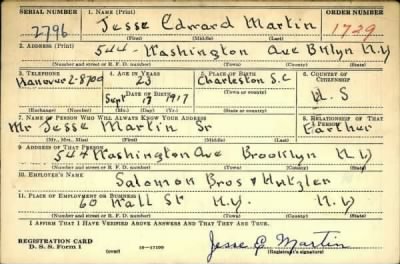 SERIAL NUMBER 1. NAME (Print) ORDER NUMBER
2796 Jesse Edward Martin 1729
(First) (Middle) (Last)
2. ADDRESS (Print)
544 - Washington Ave Bklyn N.Y
(Number and street or R. F. D. number) (Town) (County) (State)
3. TELEPHONE 4. AGE IN YEARS 5. PLACE OF BIRTH 6. COUNTRY OF CITIZENSHIP
Hanover 2-8700 23 Charleston S.C
DATE OF BIRTH (Town or county)
Sept 17 1917 U.S
(Exchange) (Number) (Mo.) (Day) (Yr.) (State or country)
7. NAME OF PERSON WHO WILL ALWAYS KNOW YOUR ADDRESS 8. RELATIONSHIP OF THAT PERSON
Mr Jesse Martin Sr Father
(Mr., Mrs., Miss) (First) (Middle) (Last)
9. ADDRESS OF THAT PERSON
544 Washington Ave Brooklyn N.Y
(Number and street or R. F. D. number) (Town) (County) (State)
10. EMPLOYER'S NAME
Salomon Bros & Hutzler
11. PLACE OF EMPLOYMENT OR BUSINESS
60 Wall St N.Y. N.Y
(Number and street or R. F. D. number) (Town) (County) (State)
I AFFIRM THAT I HAVE VERIFIED ABOVE ANSWERS AND THAT THEY ARE TRUE.
REGISTRATION CARD
D. S. S. Form 1 16-17109 Jesse E Martin
(Registrant's signature)